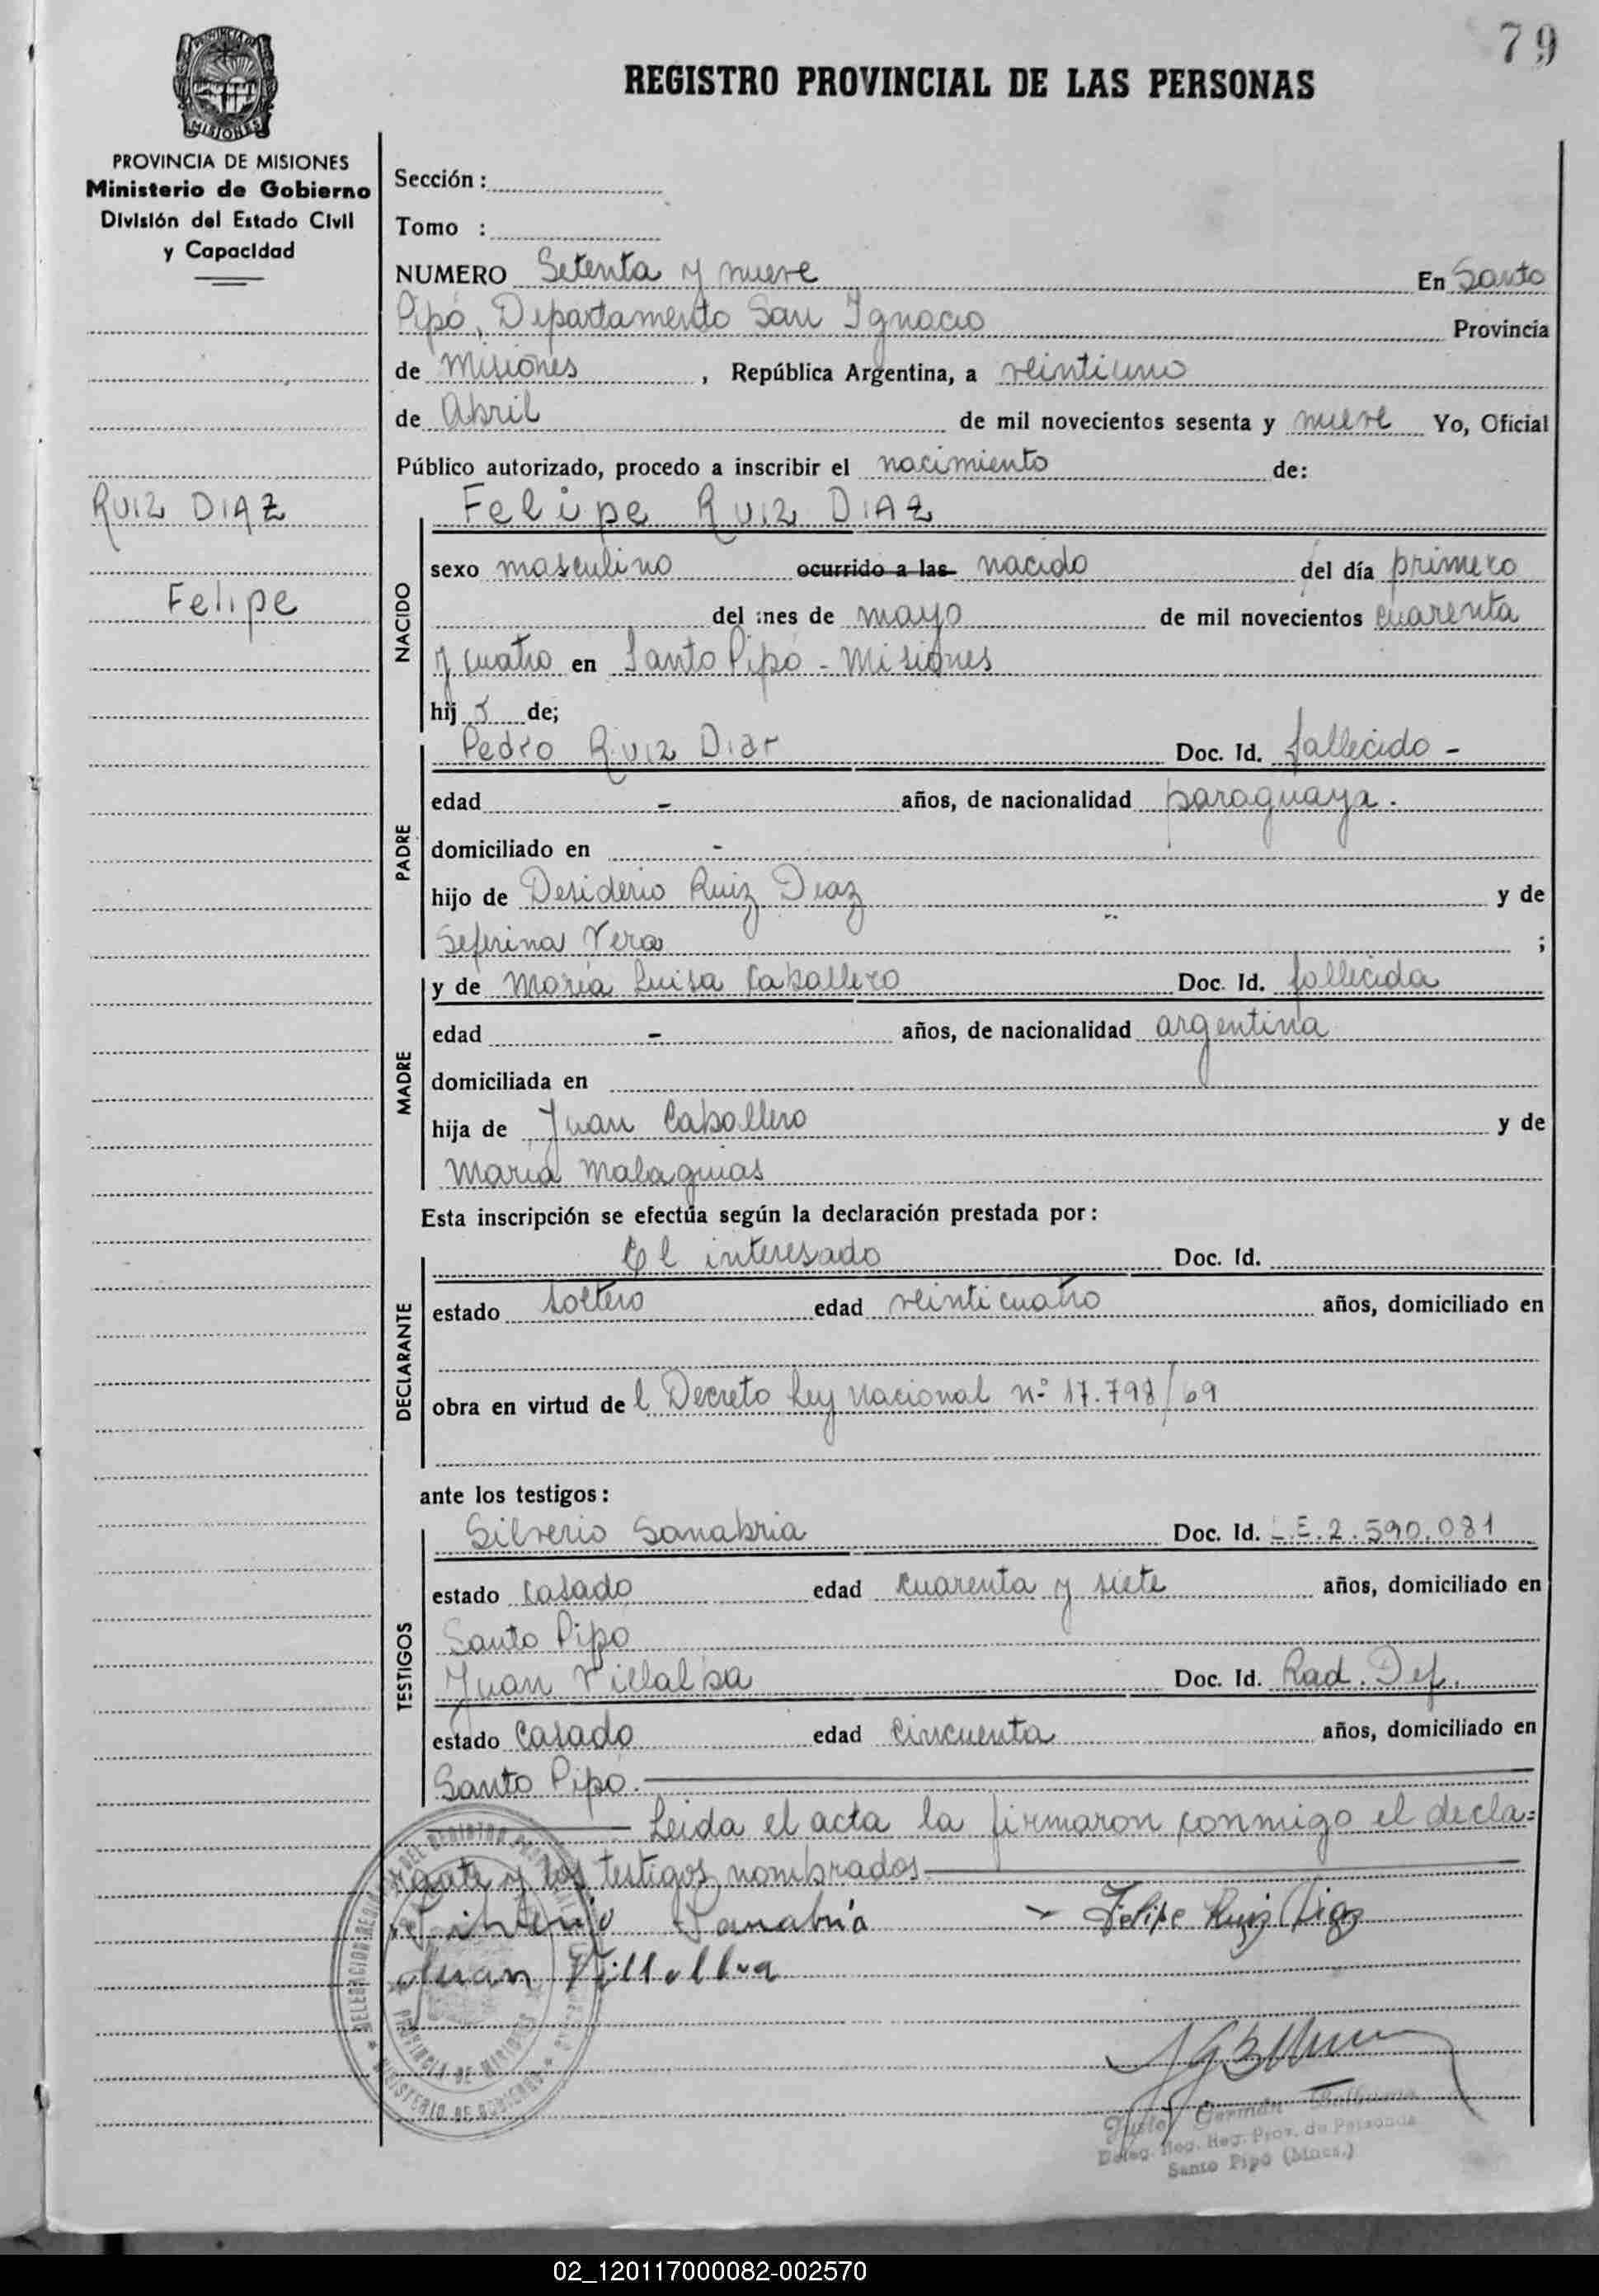 79
REGISTRO PROVINCIAL DE LAS PERSONAS
PROVINCIA DE MISIONES
MISIONES
PROVINCIA DE MISIONES
Ministerio de Gobierno
División del Estado Civil
y Capacidad
RUIZ DIAZ
Felipe
Sección :
Tomo :
NUMERO Setenta y nueve En Santo
Pipó, Departamento San Ignacio Provincia
de Misiones , República Argentina, a veintiuno
de Abril de mil novecientos sesenta y nueve Yo, Oficial
Público autorizado, procedo a inscribir el nacimiento de:
Felipe RUIZ DIAZ
NACIDO
sexo masculino ocurrido a las nacido del día primero
del mes de mayo de mil novecientos cuarenta
y cuatro en Santo Pipó - Misiones
hij o de;
PADRE
Pedro Ruiz Diaz Doc. Id. fallecido -
edad - años, de nacionalidad paraguaya.
domiciliado en -
hijo de Desiderio Ruiz Diaz y de
Seferina Vera ;
MADRE
y de María Luisa Caballero Doc. Id. fallecida
edad - años, de nacionalidad argentina
domiciliada en
hija de Juan Caballero y de
María Malaquias
Esta inscripción se efectúa según la declaración prestada por:
DECLARANTE
El interesado Doc. Id.
estado soltero edad veinticuatro años, domiciliado en
obra en virtud de l Decreto Ley Nacional nº 17.798/69
ante los testigos:
TESTIGOS
Silverio Sanabria Doc. Id. L.E. 2.590.081
estado casado edad cuarenta y siete años, domiciliado en
Santo Pipó
Juan Villalba Doc. Id. Rad. Def.
estado casado edad cincuenta años, domiciliado en
Santo Pipó.
Leida el acta la firmaron conmigo el decla=
rante y los testigos nombrados
Silverio Sanabria Felipe Ruiz Diaz
Juan Villalba
PROVINCIA DE MISIONES
MINISTERIO DE GOBIERNO
Germán
Deleg. Reg. Reg. Prov. de Personas
Santo Pipó (Mnes.)
02_120117000082-002570